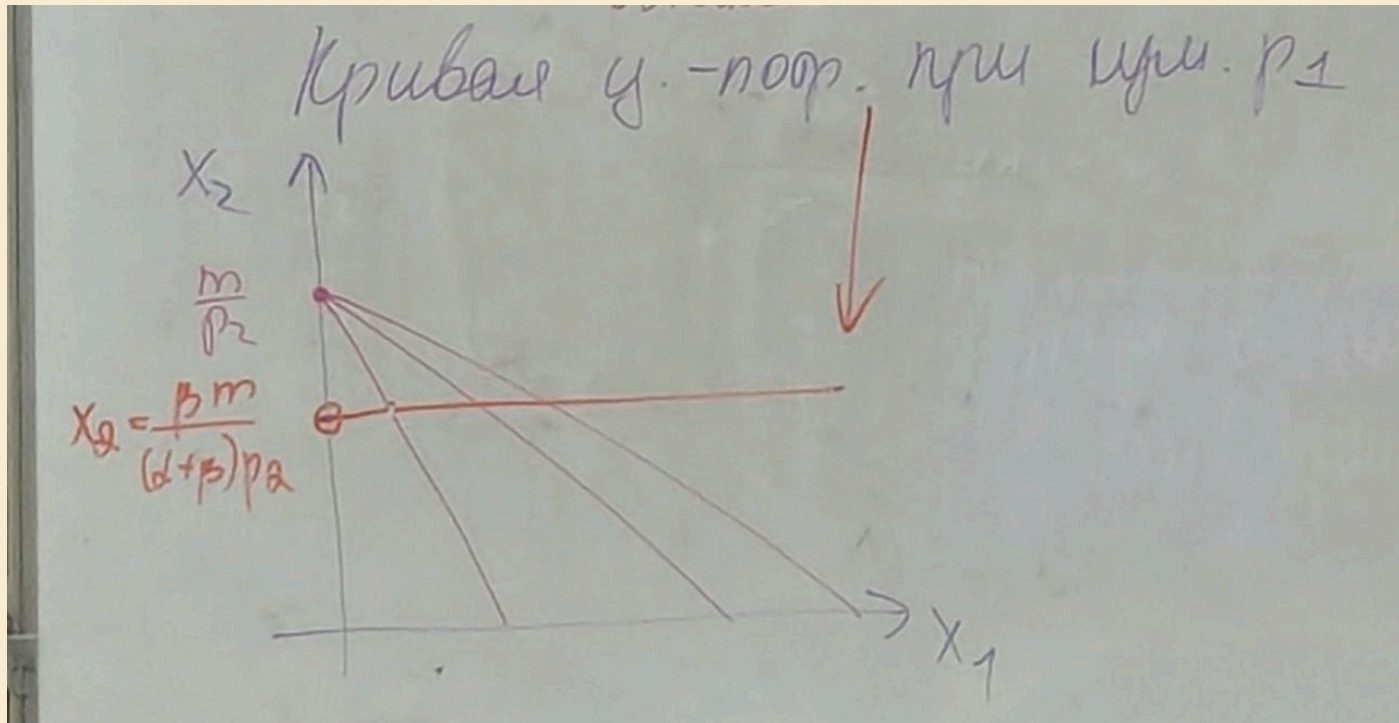 Кривая ц.-потр. при изм. p₁
x₂
m/p₂
x₂ = βm/((α+β)p₂)
x₁